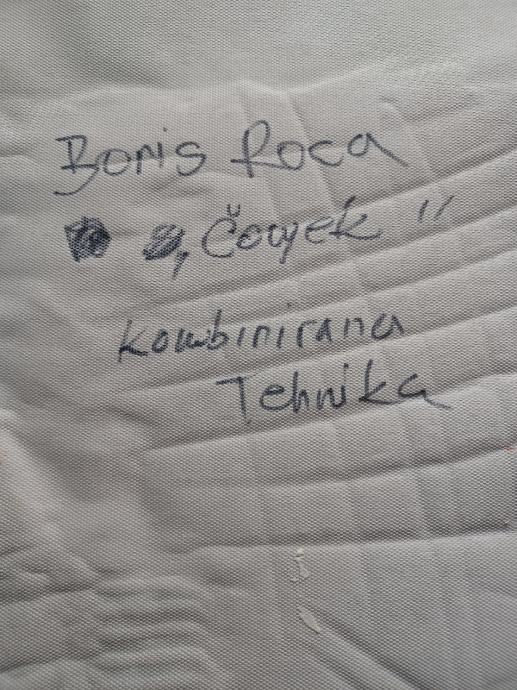 Boris Roca
„Čovjek"
kombinirana
Tehnika